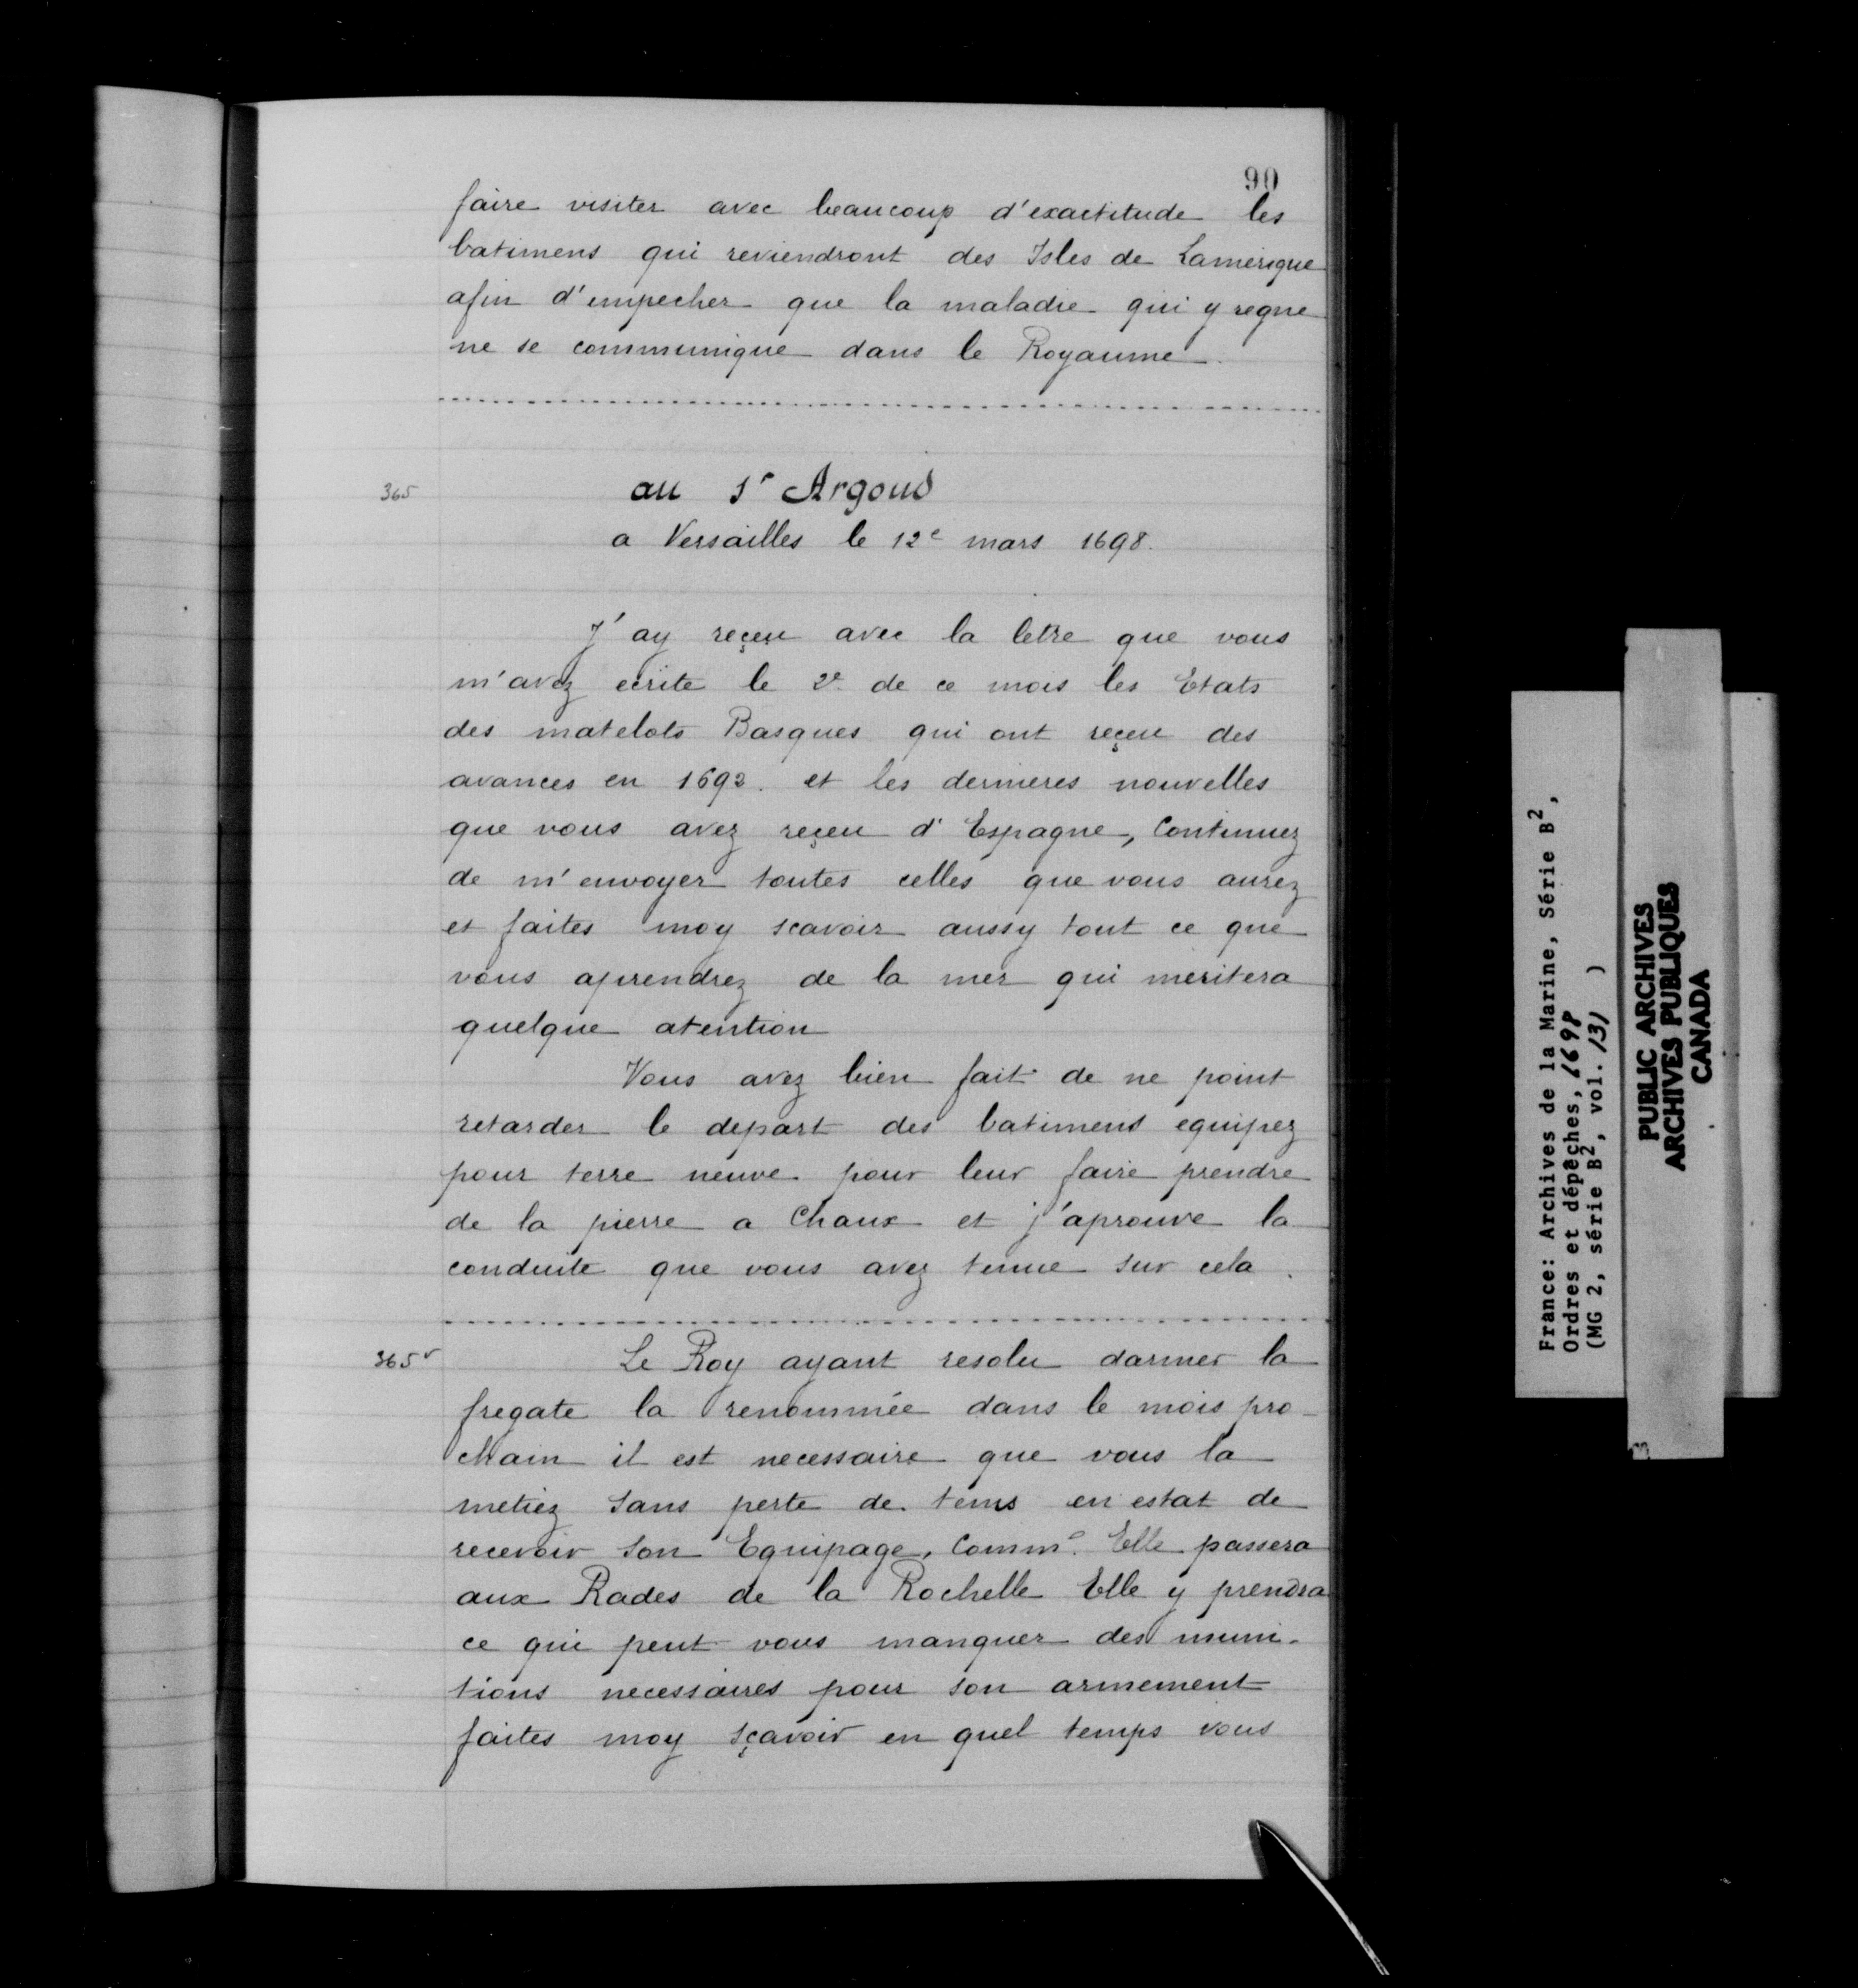 90
faire visiter avec beaucoup d'exactitude les
batimens qui reviendront des Isles de Lamerique
afin d'empecher que la maladie qui y regne
ne se communique dans le Royaume.
365
au Sr Argoud
a Versailles le 12e mars 1698.
J'ay reçeu avec la letre que vous
m'avez ecrite le 2e de ce mois les Etats
des matelots Basques qui ont reçeu des
avances en 1692. et les dernieres nouvelles
que vous avez reçeu d'Espagne, Continuez
de m'envoyer toutes celles que vous aurez
et faites moy scavoir aussy tout ce que
vous aprendrez de la mer qui meritera
quelque atention
Vous avez bien fait de ne point
retarder le depart des batimens equipez
pour terre neuve pour leur faire prendre
de la pierre a Chaux et j'aprouve la
conduite que vous avez tenue sur cela.
365v
Le Roy ayant resolu darmer la
fregate la renommée dans le mois pro-
chain il est necessaire que vous la
metiez sans perte de tems en estat de
recevoir son Equipage, Comme Elle passera
aux Rades de la Rochelle Elle y prendra
ce qui peut vous manquer des muni-
tions necessaires pour son armement
faites moy sçavoir en quel temps vous
France: Archives de la Marine, Série B2,
Ordres et dépêches, 1698
(MG 2, série B2, vol. 131 )
PUBLIC ARCHIVES
ARCHIVES PUBLIQUES
CANADA